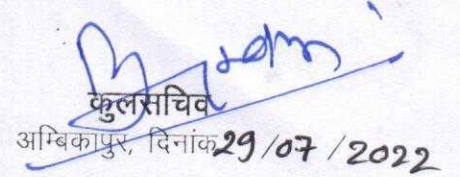 कुलसचिव
अम्बिकापुर, दिनांक 29/07/2022